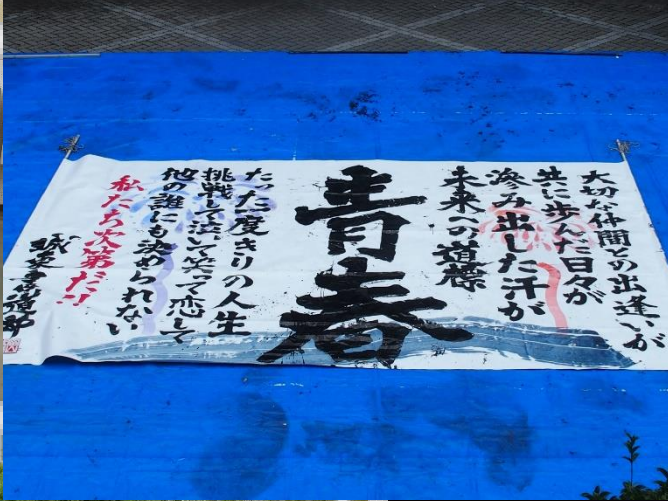 大切な仲間との出逢いが
共に歩んだ日々が
滲み出した汗が
未来への道標
青春
たった一度きりの人生
挑戦して泣いて笑って恋して
他の誰にも染められない
私たち次第だ!!
書道部